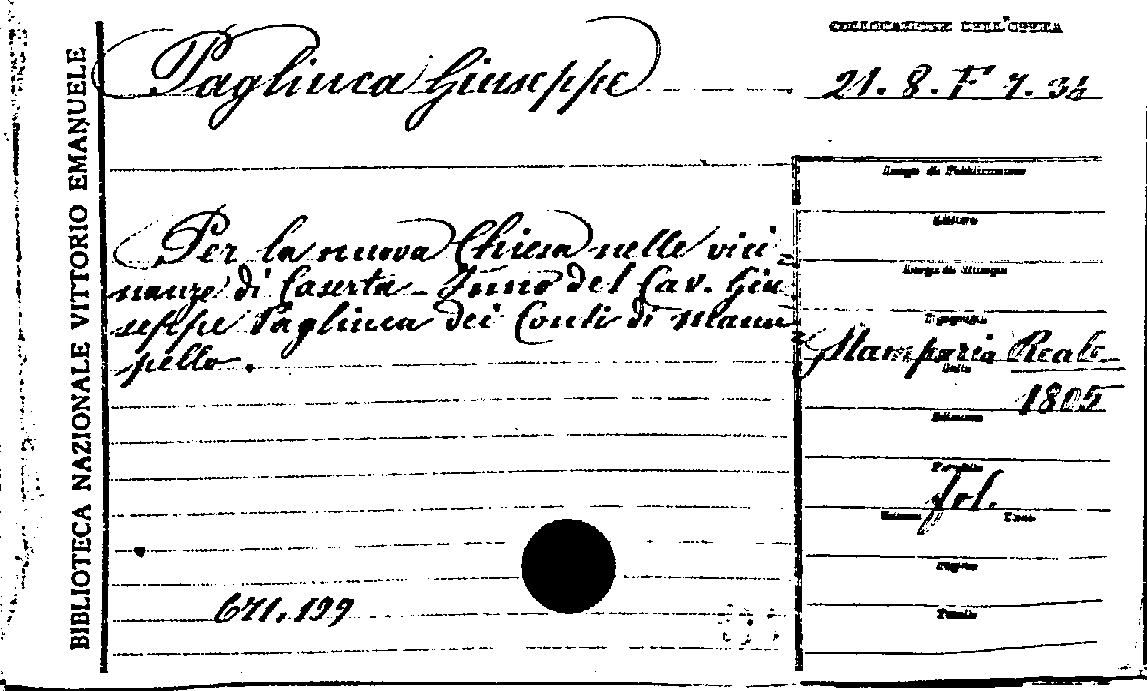 BIBLIOTECA NAZIONALE VITTORIO EMANUELE
COLLOCAZIONE DELL'OPERA
Pagliuca Giuseppe
21. 8. F 7. 36
Luogo di Pubblicazione
Editore
Luogo di Stampa
Tipografia
Per la nuova Chiesa nelle vici-
nanze di Caserta - Inno del Cav. Giu-
seppe Pagliuca dei Conti di Manu-
pello.
Stamperia Reale
Data
1805
Edizione
Formato
fol.
Volume
Tomo
Pagine
Tavole
671.199